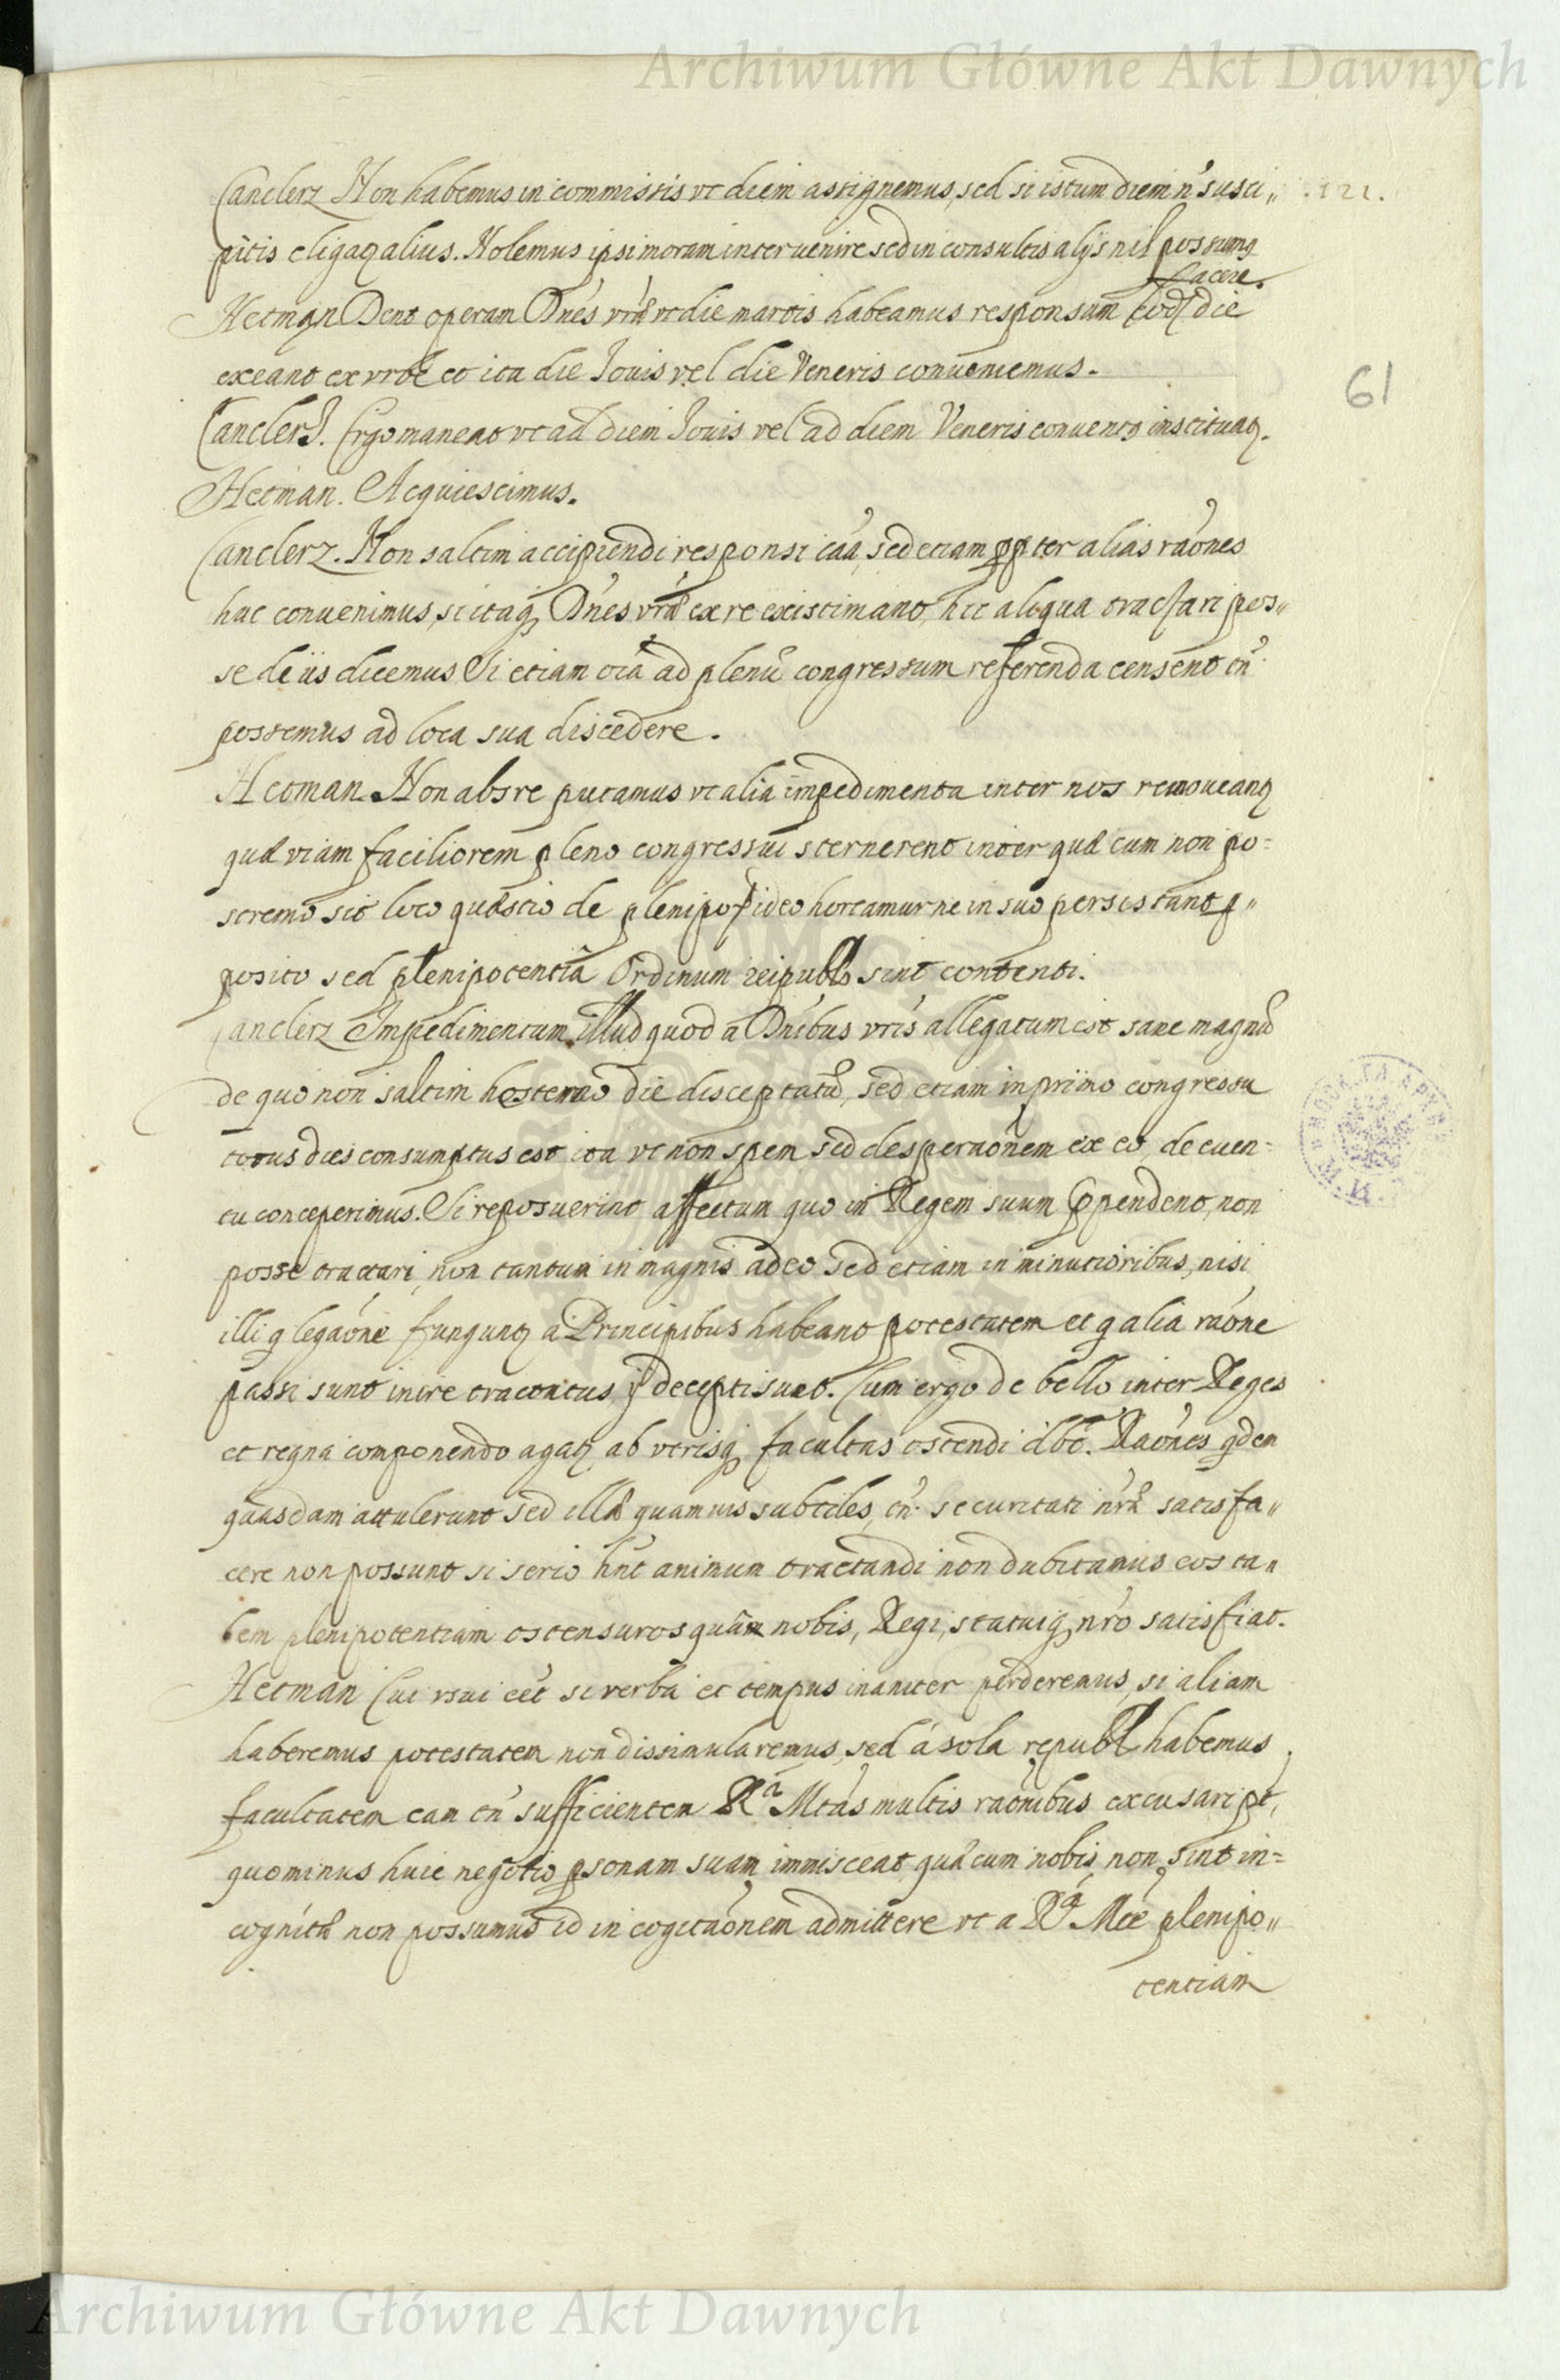 Archiwum Główne Akt Dawnych
Canclerz Non habemus in commissis vt diem assignemus, sed si istum diem n' susci„ .121.
pitis eligaq alius. Nolemus ipsi moram interuenire sed in consultis alijs nil possumq
facere.
Hetman Dent operam Dnes vrae vt die martis habeamus responsum eod die
exeant ex vrbe et ita die Jouis vel die Veneris conueniemus.
61
Canclerz. Ergo maneat vt ad diem Jouis vel ad diem Veneris conuentq instituatq.
Hetman. Acquiescimus.
Canclerz. Non saltim accipiendi responsi caa, sed etiam ppter alias raones
huc conuenimus, si itaq Dnes vrae ex re existimant, hic aliqua tractari pos„
se de iis dicemus Si etiam oia ad plenu congressum referenda censent tn
possemus ad loca sua discedere.
Hetman Non abs re putamus vt alia impedimenta inter nos remoueantq
quae viam faciliorem pleno congressui sternerent inter quae cum non po=
stremo sit loco quaestio de plenipot ideo hortamur ne in suo persistant p„
posito sed plenipotentia Ordinum reipubl sint contenti.
Canclerz Impedimentum illud quod a Dnibus vris allegatum est sane magnu
de quo non saltim hesterno die disceptatu, sed etiam in primo congressu
totus dies consumptus est ita vt non spem sed desperaonem ex eo de euen=
tu conceperimus. Si reposuerint affectum quo in Regem suum ppendent, non
posse tractari, non tantum in magnis adeo sed etiam in minutioribus, nisi
illi q legaone funguntq a Principibus habeant potestatem et q alia raone
passi sunt inire tractatus, ij decepti sunt. Cum ergo de bello inter Reges
et regna componendo agatq ab vtrisq facultas ostendi dbt. Raones qdem
quasdam attulerunt sed illae quamuis subtiles, tn securitati nrae satisfa„
cere non possunt si serio hnt animum tractandi non dubitamus eos ta„
lem plenipotentiam ostensuros quam nobis, Regi, statuiq nro satisfiat.
Hetman Cui vsui eet si verba et tempus inaniter perderemus, si aliam
haberemus potestatem non dissimularemus, sed á sola republ habemus
facultatem eam tn sufficientem Ra Mtas multis raonibus excusari pt,
quominus huic negotio psonam suam immisceat quae cum nobis non sint in=
cognitae non possumus id in cogitaonem admittere vt a Ra Mte plenipo„
tentiam
Archiwum Główne Akt Dawnych